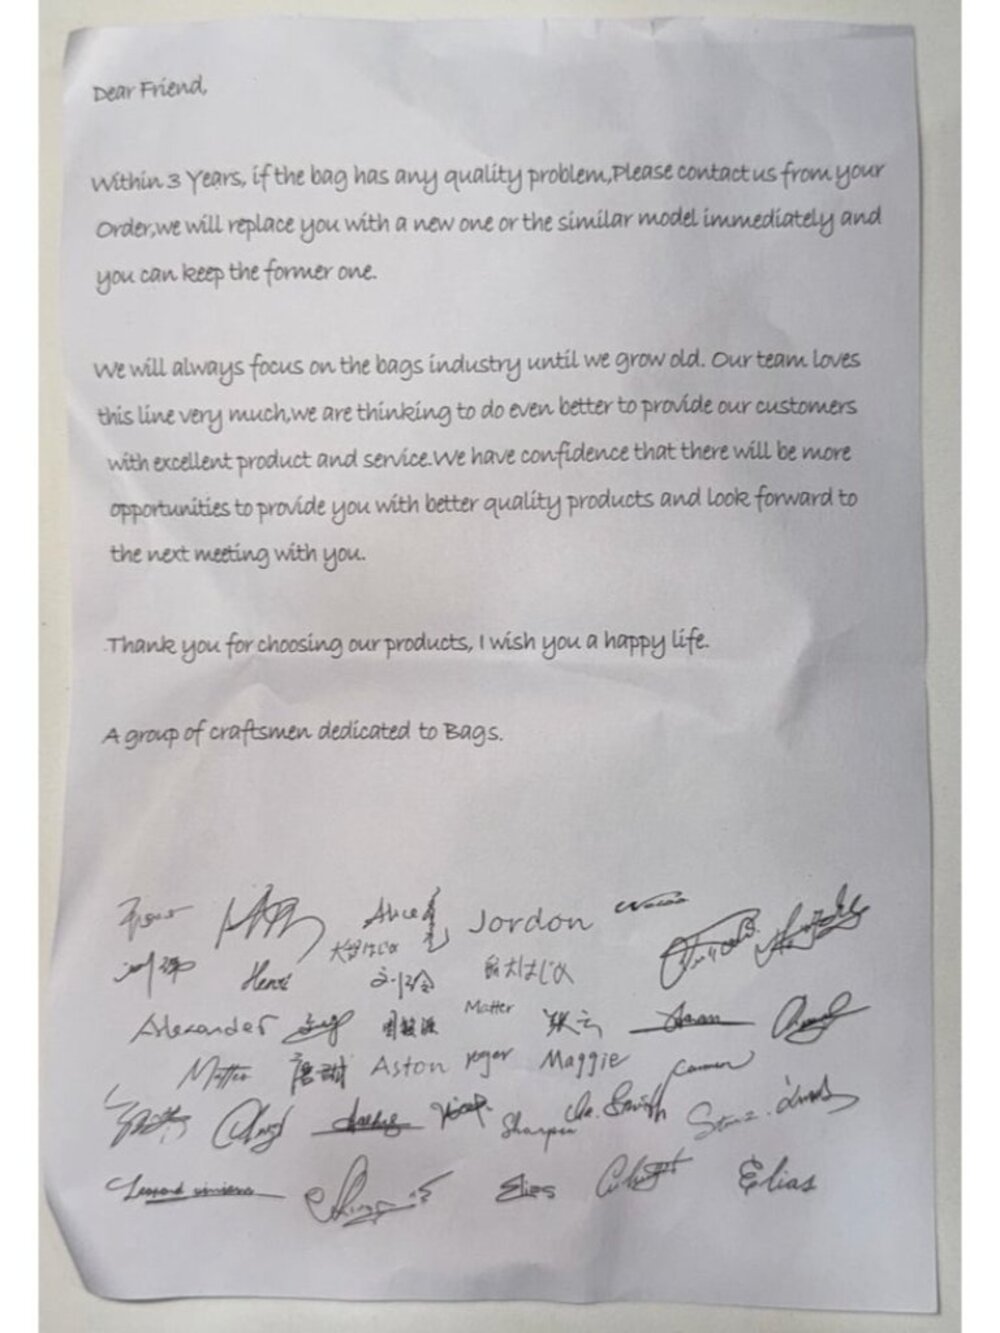 Dear Friend,
Within 3 Years, if the bag has any quality problem,Please contact us from your
Order,we will replace you with a new one or the similar model immediately and
you can keep the former one.
We will always focus on the bags industry until we grow old. Our team loves
this line very much,we are thinking to do even better to provide our customers
with excellent product and service.We have confidence that there will be more
opportunities to provide you with better quality products and look forward to
the next meeting with you.
Thank you for choosing our products, I wish you a happy life.
A group of craftsmen dedicated to Bags.
Alice Jordon
Henri
Alexander Matter
Matteo Aston roger Maggie Carmen
Sharpen
Elies Elias